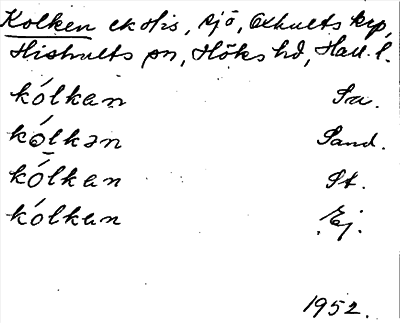 Kolken ek His, sjö, Oxhults krp,
Hishults sn, Höks hd, Hall. l.
kólkan Sa.
kólkən Sand.
kólkan St.
kólkan Ej.
1952.